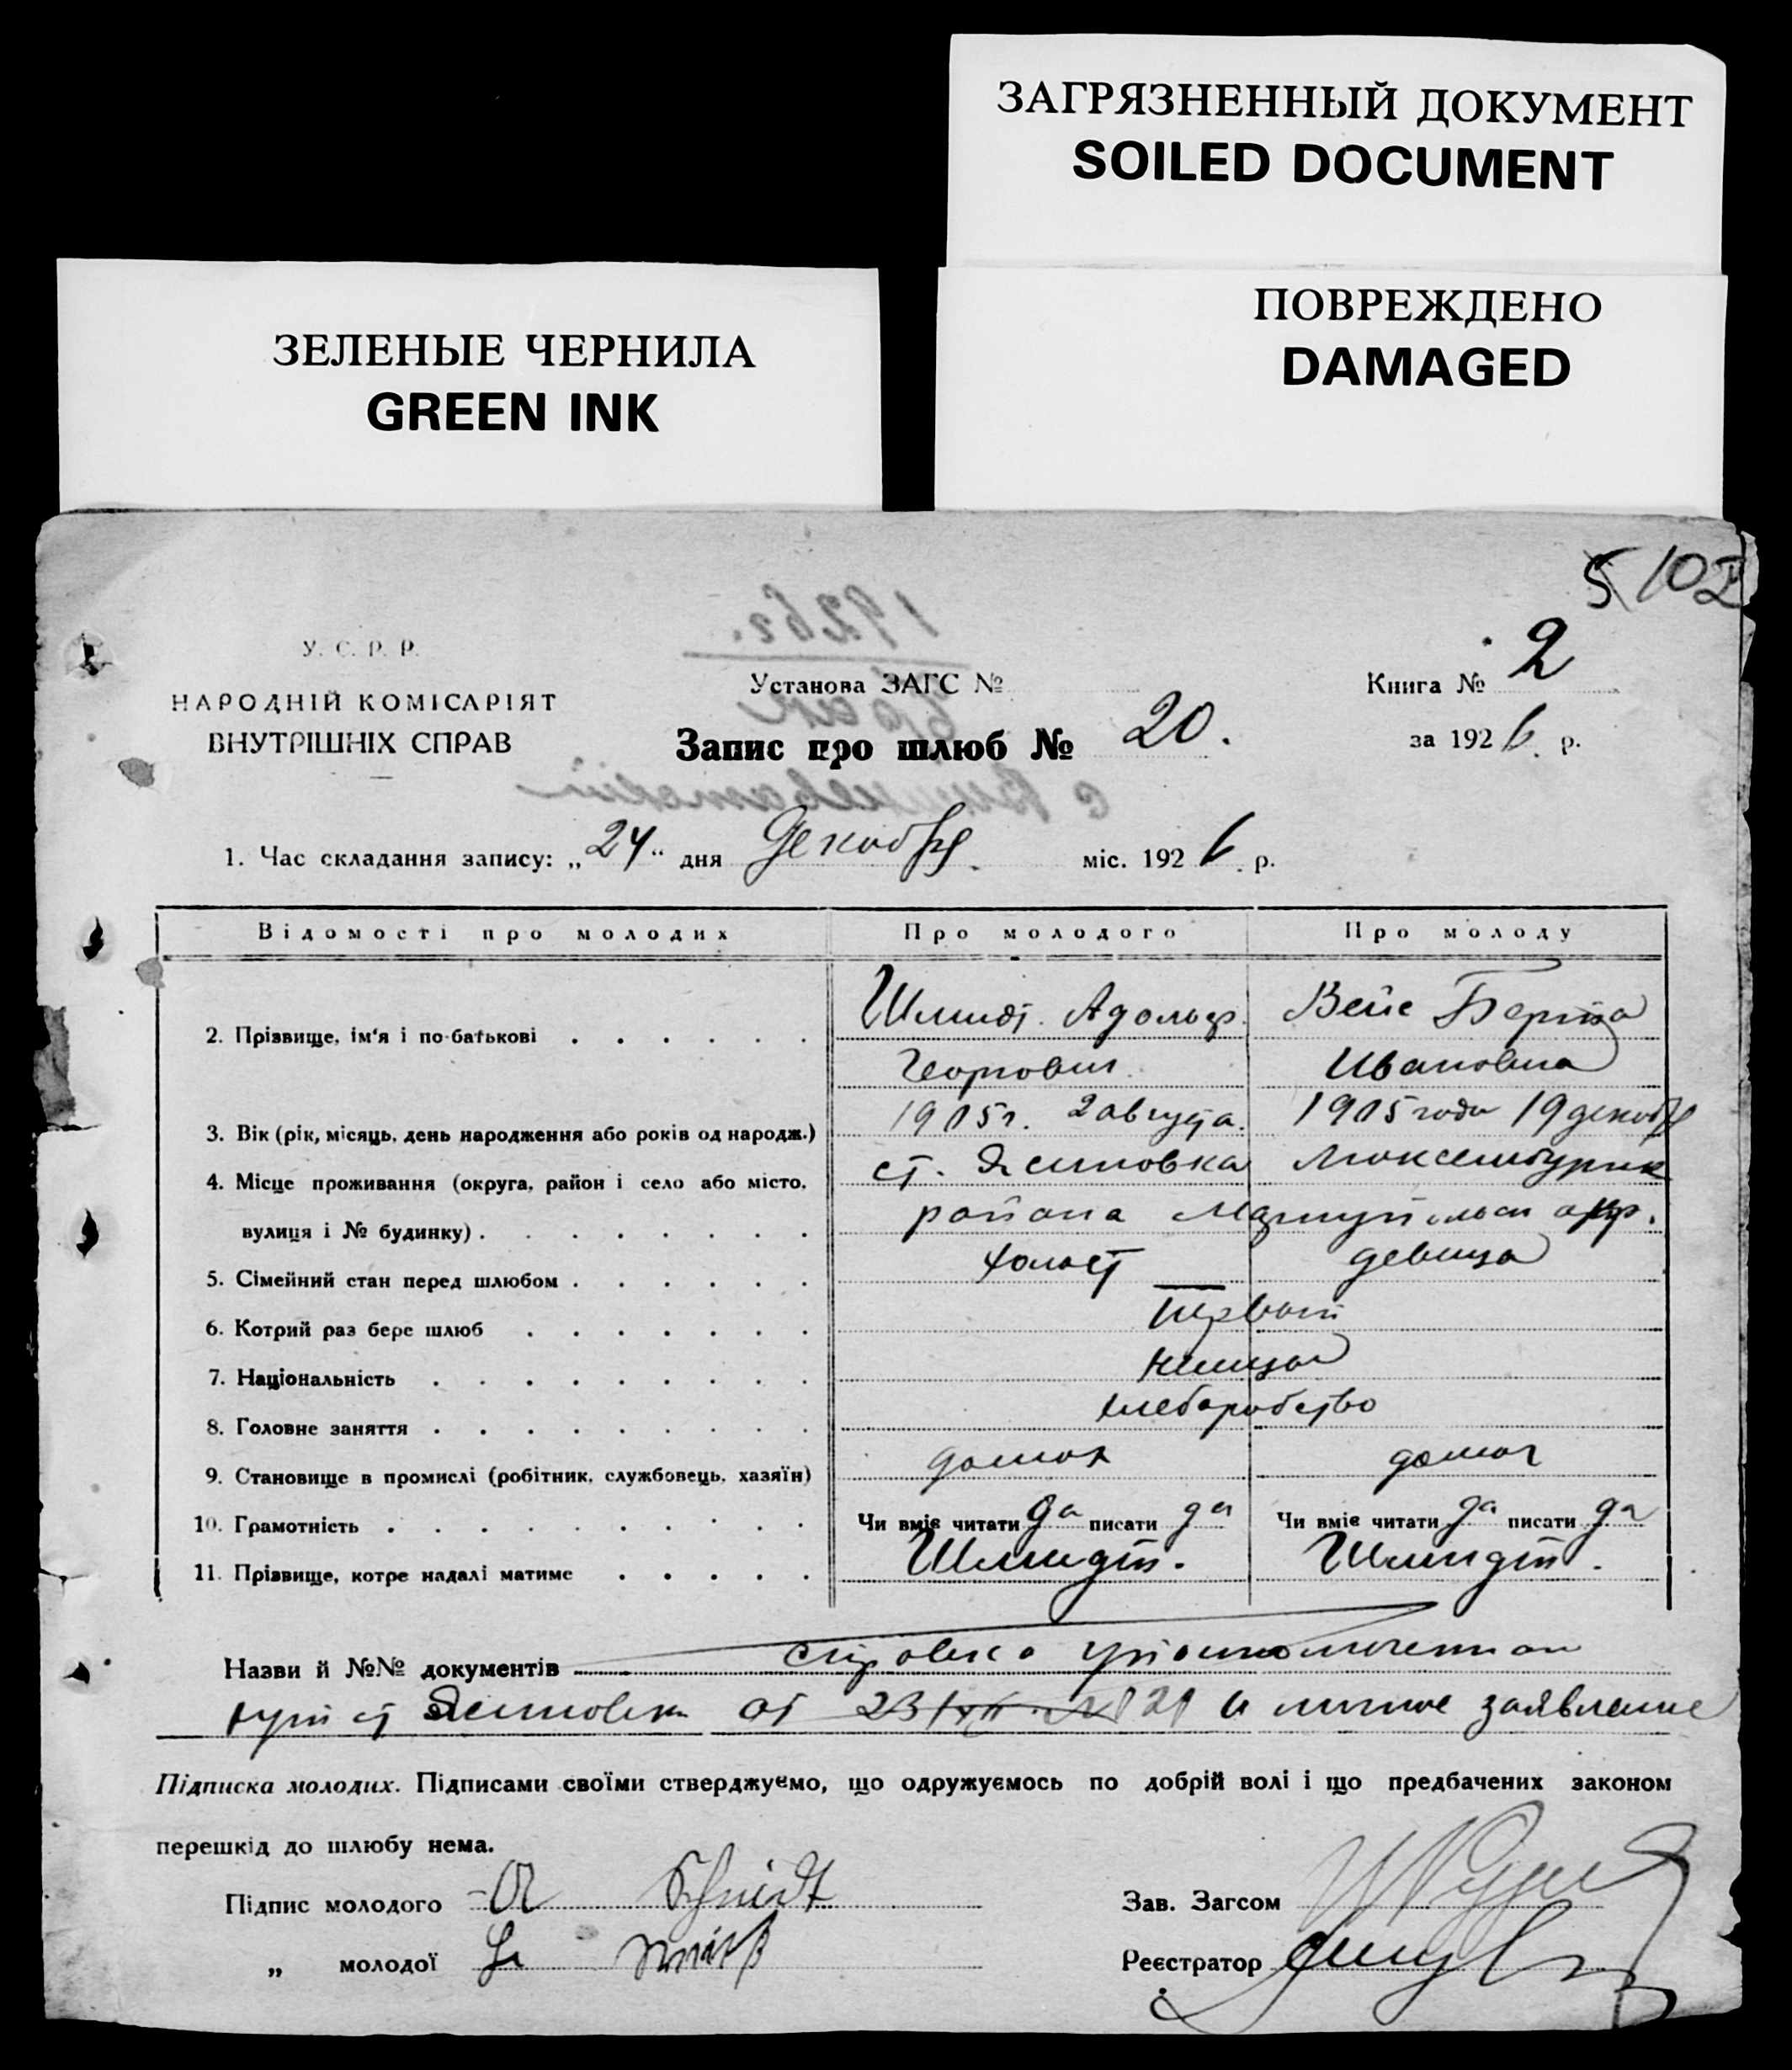 ЗАГРЯЗНЕННЫЙ ДОКУМЕНТ
SOILED DOCUMENT
ПОВРЕЖДЕНО
DAMAGED
ЗЕЛЕНЫЕ ЧЕРНИЛА
GREEN INK
5 102
У. С. Р. Р.
НАРОДНІЙ КОМІСАРІЯТ
ВНУТРІШНІХ СПРАВ
1926 г.
Установа ЗАГС №
Книга № 2
Запис про шлюб № 20.
за 1926 р.
1. Час складання запису: „24“ дня Декабря міс. 1926 р.
Відомості про молодих Про молодого Про молоду
2. Прізвище, ім'я і по-батькові Шмидт Адольф Вейс Берта
Георгович Ивановна
3. Вік (рік, місяць, день народження або років од народж.) 1905 г. 2 августа. 1905 года 19 декабр
4. Місце проживання (округа, район і село або місто, ст. Ясиновка Люксембургск
вулиця і № будинку) района Мариупольск окр.
5. Сімейний стан перед шлюбом холост девица
6. Котрий раз бере шлюб первый
7. Національність немцы
8. Головне заняття хлеборобство
9. Становище в промислі (робітник, службовець, хазяїн)
10. Грамотність Чи вміє читати да писати да Чи вміє читати да писати да
11. Прізвище, котре надалі матиме Шмидт. Шмидт.
Назви й №№ документів справка уполномоченнаго
Ясиновки от 23/XII и личное заявление
Підписка молодих. Підписами своїми стверджуємо, що одружуємось по добрій волі і що предбачених законом
перешкід до шлюбу нема.
Підпис молодого A Schmidt Зав. Загсом
„ молодої Реєстратор